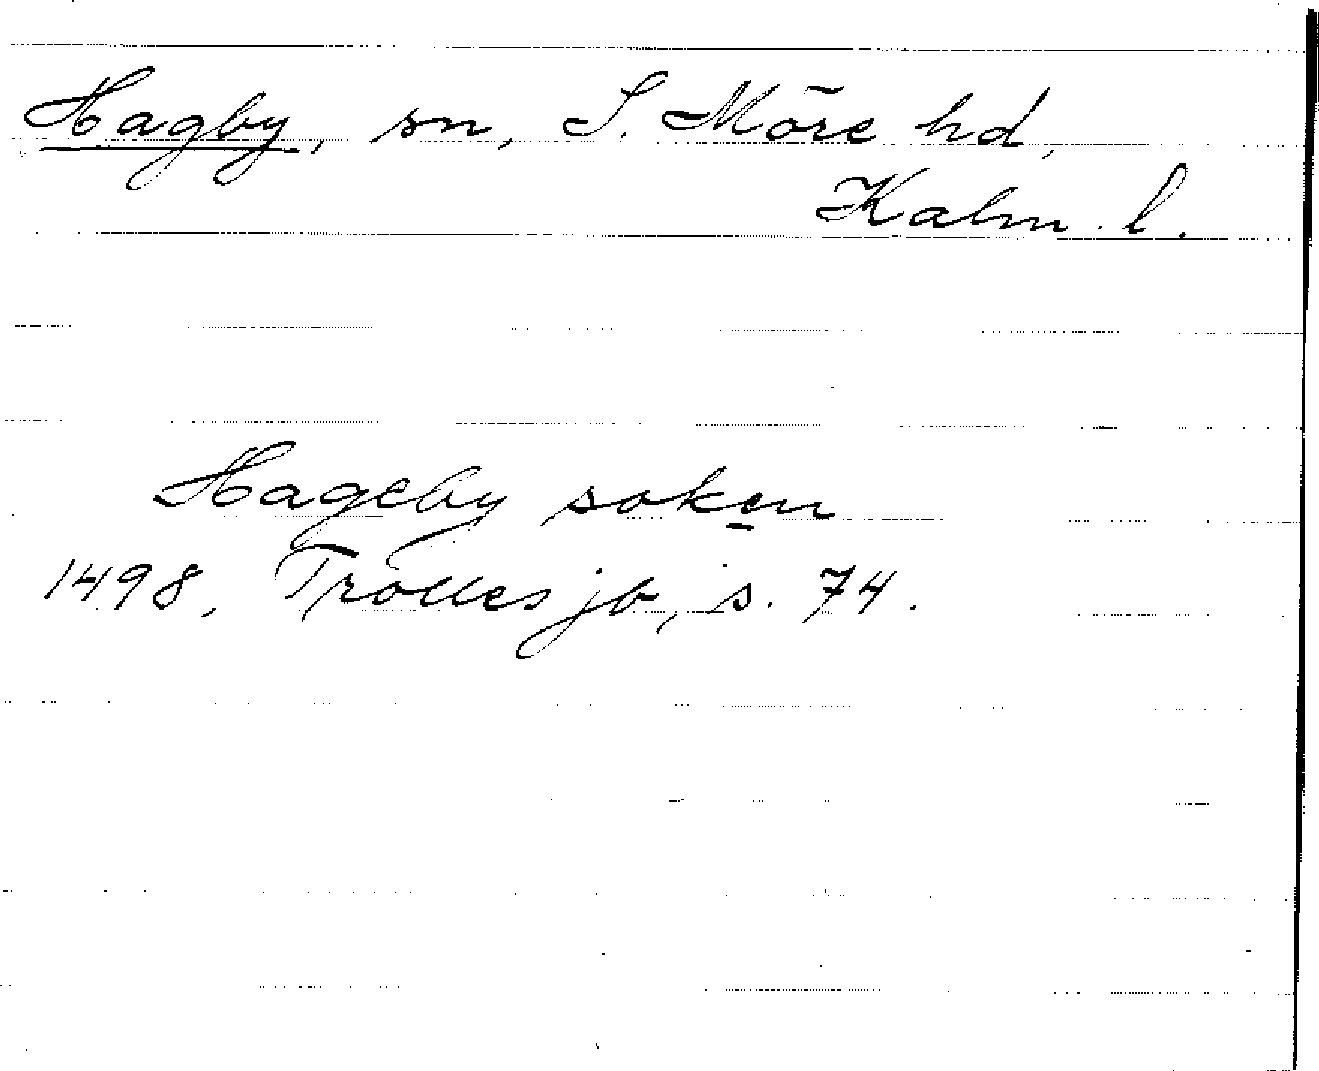 Hagby, sn, S. Möre hd,
Kalm. l.
Hageby soken
1498, Trolles jb, s. 74.